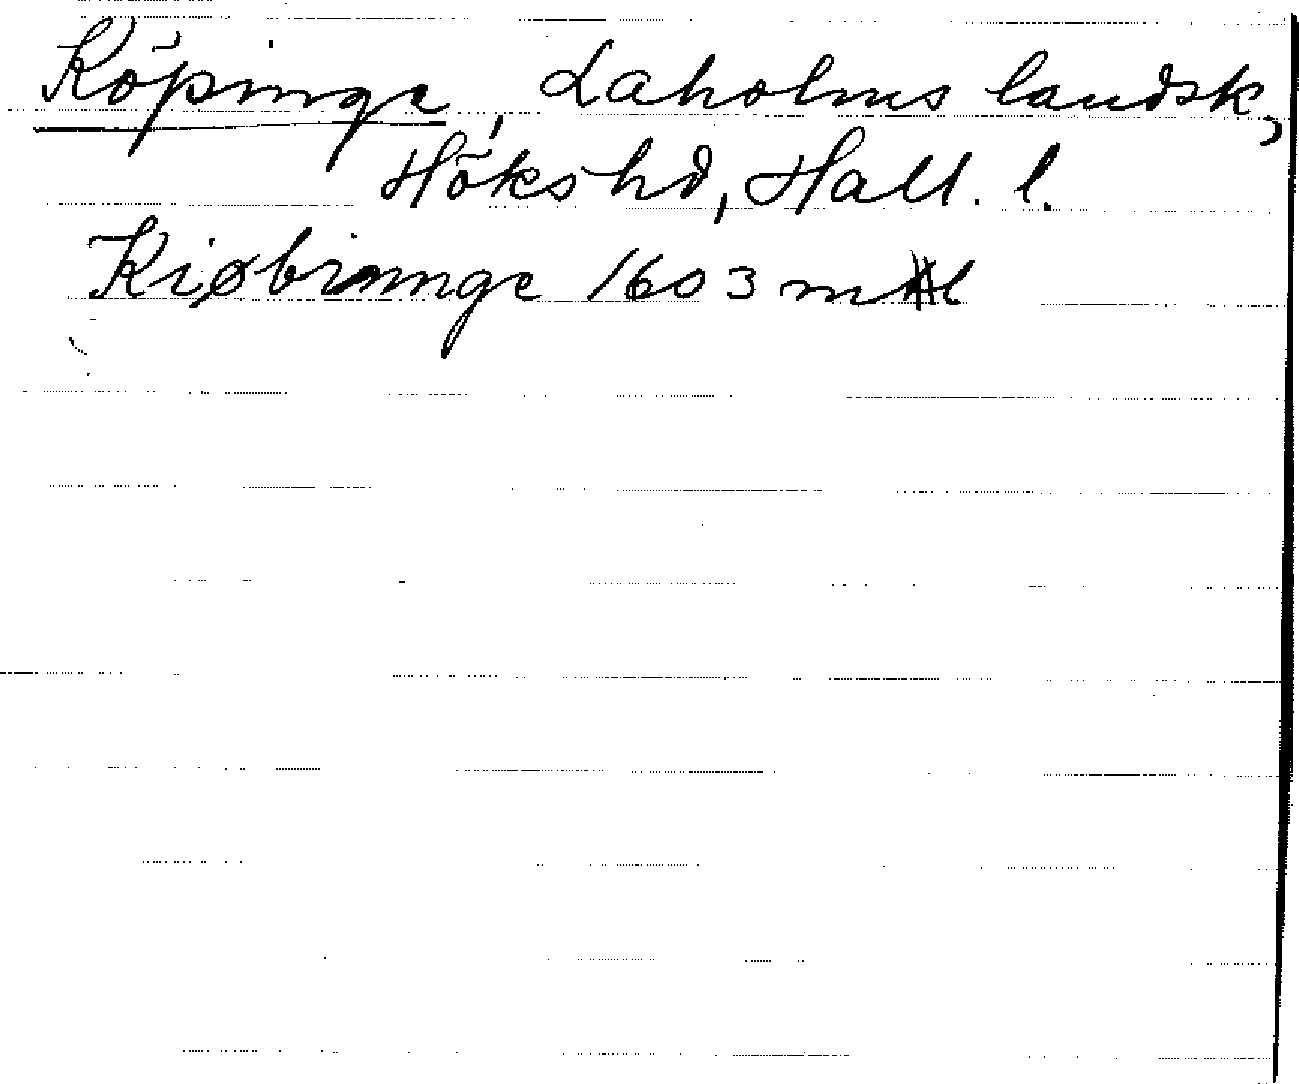 Köpinge, Laholms landsk,
Höks hd, Hall. l.
Kiøbinnge 1603